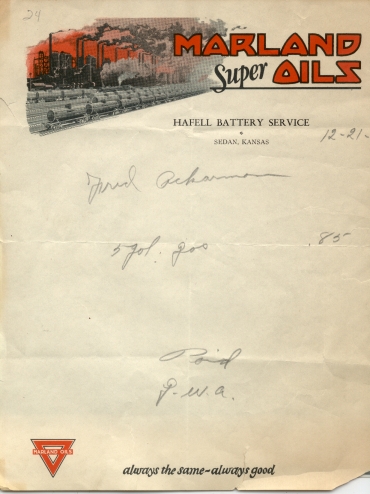 24
MARLAND
Super OILS
HAFELL BATTERY SERVICE
SEDAN, KANSAS
12-21-
Fred Ackarman
5 gol. gas 85
Paid
P.W.A.
MARLAND OILS
always the same~always good